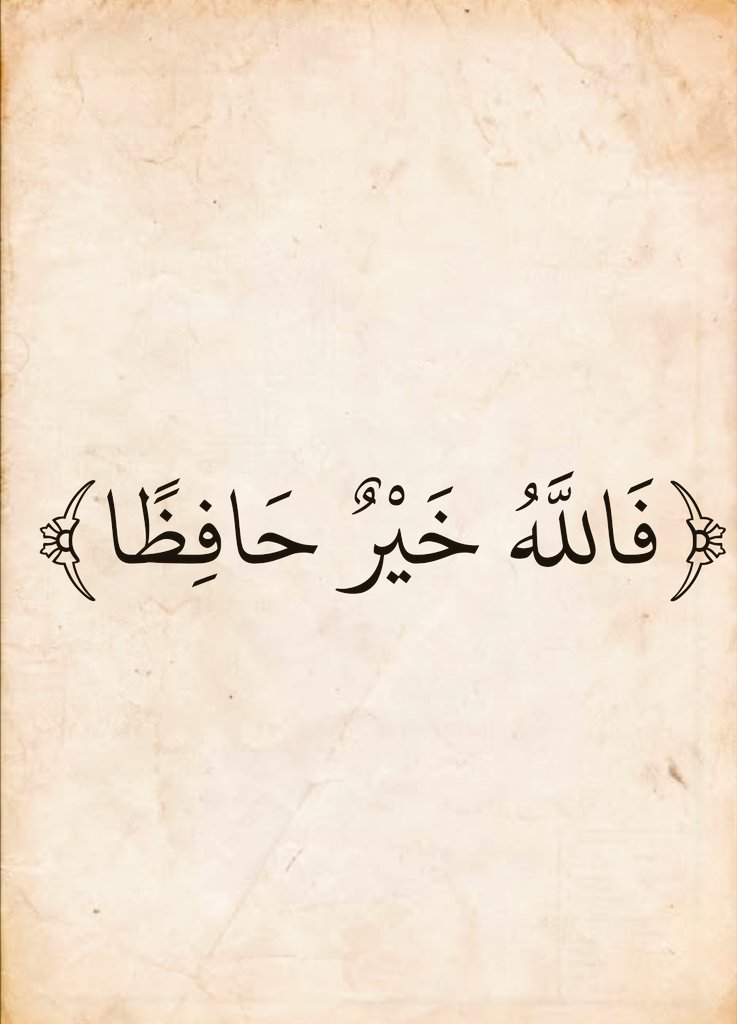 ﴿فَاللَّهُ خَيْرٌ حَافِظًا﴾